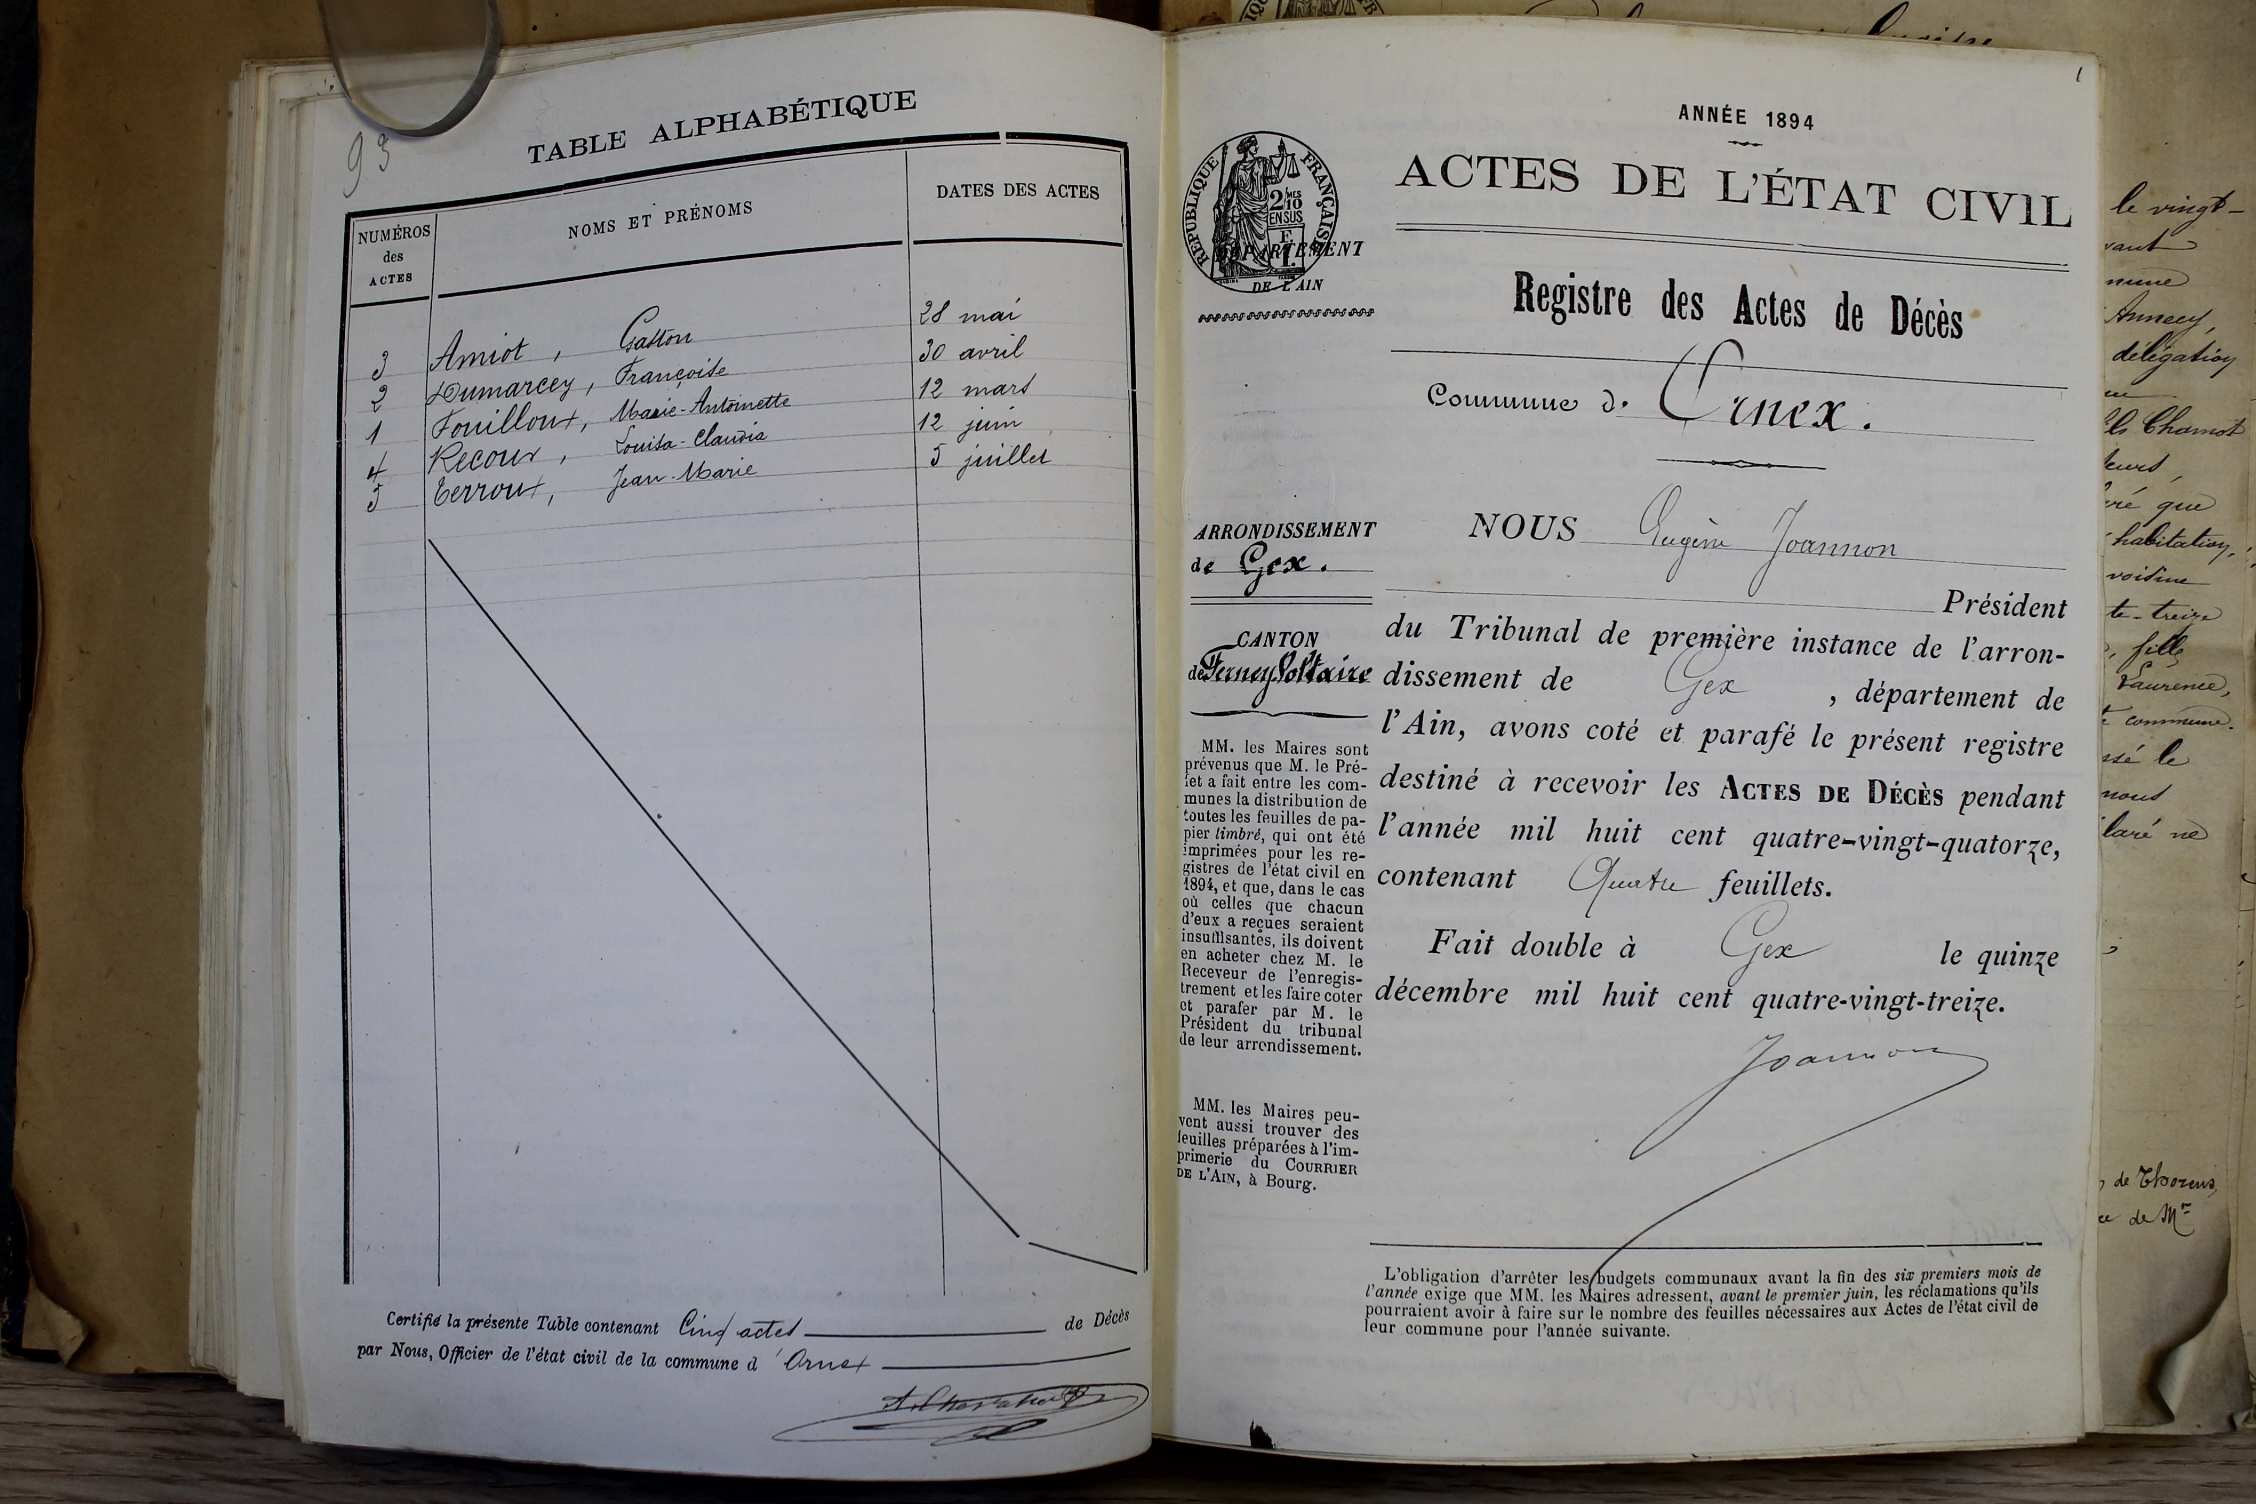 93
TABLE ALPHABÉTIQUE
NUMÉROS
des
ACTES
NOMS ET PRÉNOMS
DATES DES ACTES
3 Amiot, Gaston 28 mai
2 Dumarcey, Françoise 30 avril
1 Fouilloux, Marie-Antoinette 12 mars
4 Recour, Louisa-Claudia 12 juin
5 Terroux, Jean-Marie 5 juillet
Certifié la présente Table contenant Cinq actes de Décès
par Nous, Officier de l'état civil de la commune d'Ornex
1
ANNÉE 1894
ACTES DE L'ÉTAT CIVIL
RÉPUBLIQUE FRANÇAISE
2 10
EN SUS
DÉPARTEMENT
DE L'AIN
Registre des Actes de Décès
Commune d. Ornex.
ARRONDISSEMENT
de Gex.
CANTON
de Ferney Voltaire
MM. les Maires sont
prévenus que M. le Pré-
fet a fait entre les com-
munes la distribution de
toutes les feuilles de pa-
pier timbré, qui ont été
imprimées pour les re-
gistres de l'état civil en
1894, et que, dans le cas
où celles que chacun
d'eux a reçues seraient
insuffisantes, ils doivent
en acheter chez M. le
Receveur de l'enregis-
trement et les faire coter
et parafer par M. le
Président du tribunal
de leur arrondissement.
MM. les Maires peu-
vent aussi trouver des
feuilles préparées à l'im-
primerie du COURRIER
DE L'AIN, à Bourg.
NOUS Eugène Joannon
Président
du Tribunal de première instance de l'arron-
dissement de Gex, département de
l'Ain, avons coté et parafé le présent registre
destiné à recevoir les ACTES DE DÉCÈS pendant
l'année mil huit cent quatre-vingt-quatorze,
contenant Quatre feuillets.
Fait double à Gex le quinze
décembre mil huit cent quatre-vingt-treize.
Joannon
L'obligation d'arrêter les budgets communaux avant la fin des six premiers mois de
l'année exige que MM. les Maires adressent, avant le premier juin, les réclamations qu'ils
pourraient avoir à faire sur le nombre des feuilles nécessaires aux Actes de l'état civil de
leur commune pour l'année suivante.
le vingt-
Annecy,
délégation
Chamot
que
habitation,
voisine
te-treize
fille
Laurence,
commune.
le
nous
laré ne
de Thorens,
de Mr